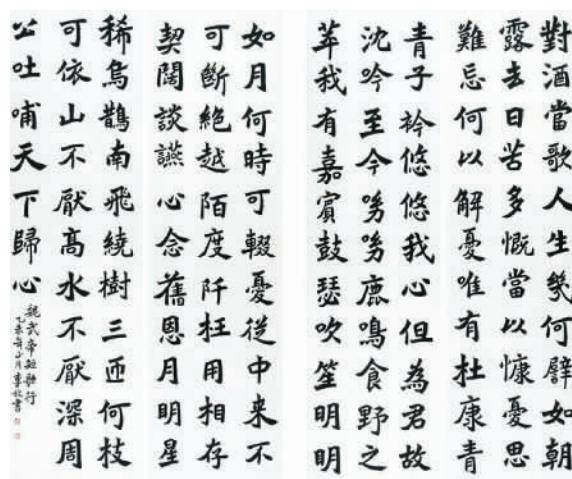 對酒當歌人生幾何譬如朝
露去日苦多慨當以慷憂思
難忘何以解憂唯有杜康青
青子衿悠悠我心但為君故
沈吟至今呦呦鹿鳴食野之
苹我有嘉賓鼓瑟吹笙明明
如月何時可輟憂從中来不
可斷絕越陌度阡枉用相存
契闊談讌心念舊恩月明星
稀烏鵲南飛繞樹三匝何枝
可依山不厭高水不厭深周
公吐哺天下歸心
魏武帝短歌行
乙未年 月 書